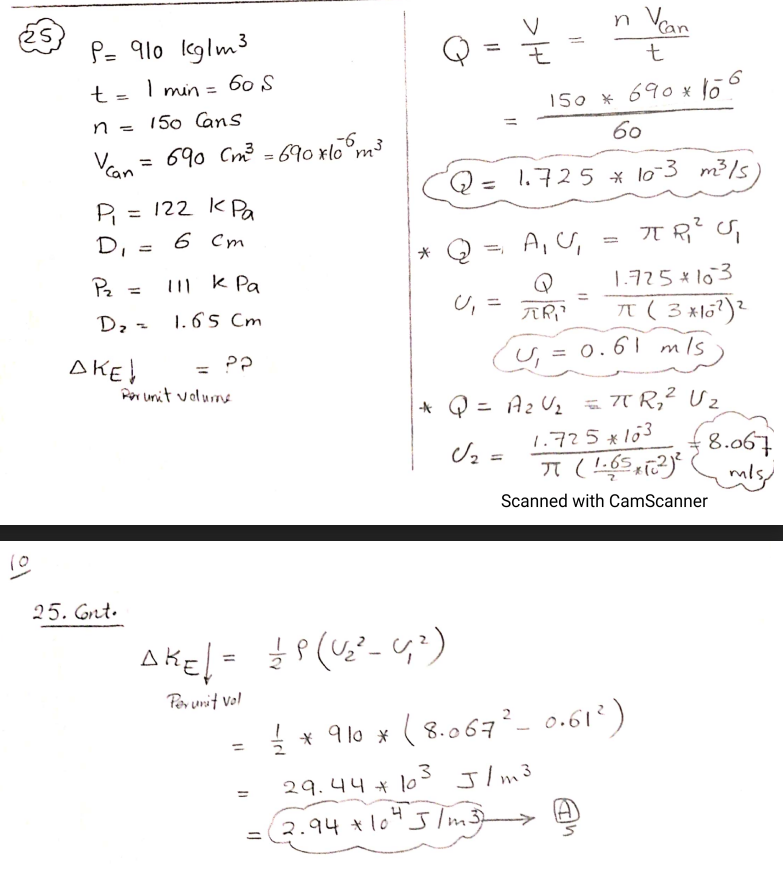 25
ρ = 910 kg/m³
t = 1 min = 60 S
n = 150 Cans
V_Can = 690 Cm³ = 690 *10⁻⁶ m³
P₁ = 122 kPa
D₁ = 6 Cm
P₂ = 111 kPa
D₂ = 1.65 Cm
ΔKE↓ = ??
Per unit volume
Q = V/t = n V_Can / t
= 150 * 690 * 10⁻⁶ / 60
Q = 1.725 * 10⁻³ m³/s
* Q = A₁ U₁ = π R₁² U₁
U₁ = Q / πR₁² = 1.725 * 10⁻³ / π ( 3 *10⁻²)²
U₁ = 0.61 m/s
* Q = A₂ U₂ = π R₂² U₂
U₂ = 1.725 * 10⁻³ / π ( 1.65/2 * 10⁻²)² = 8.067 m/s
Scanned with CamScanner
10
25. Cont.
ΔKE↓ = 1/2 ρ (U₂² - U₁²)
Per unit vol
= 1/2 * 910 * ( 8.067² - 0.61² )
= 29.44 * 10³ J/m³
= 2.94 * 10⁴ J/m³ → A/5